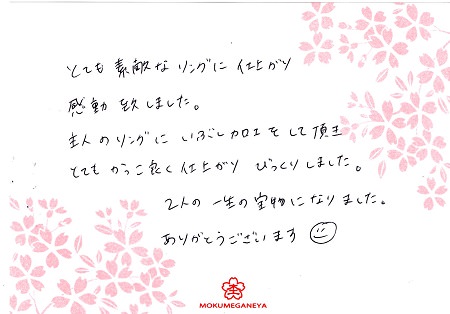 とても素敵なリングに仕上がり
感動致しました。
主人のリングにいぶし加工をして頂き
とてもかっこ良く仕上がりびっくりしました。
2人の一生の宝物になりました。
ありがとうございます
MOKUMEGANEYA